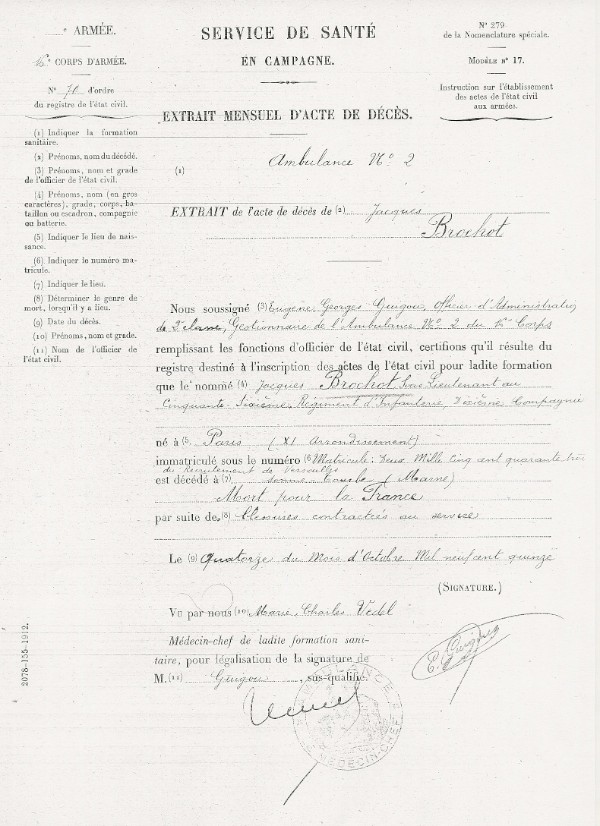 ARMÉE.
CORPS D'ARMÉE.
N° 70 d'ordre
du registre de l'état civil.
(1) Indiquer la formation
sanitaire.
(2) Prénoms, nom du décédé.
(3) Prénoms, nom et grade
de l'officier de l'état civil.
(4) Prénoms, nom (en gros
caractères), grade, corps, ba-
taillon ou escadron, compagnie
ou batterie.
(5) Indiquer le lieu de nais-
sance.
(6) Indiquer le numéro ma-
tricule.
(7) Indiquer le lieu.
(8) Déterminer le genre de
mort, lorsqu'il y a lieu.
(9) Date du décès.
(10) Prénoms, nom et grade.
(11) Nom de l'officier de
l'état civil.
2078-155-1912.
SERVICE DE SANTÉ
EN CAMPAGNE.
N° 279
de la Nomenclature spéciale.
MODÈLE N° 17.
Instruction sur l'établissement
des actes de l'état civil
aux armées.
EXTRAIT MENSUEL D'ACTE DE DÉCÈS.
(1) Ambulance N° 2
EXTRAIT de l'acte de décès de (2) Jacques
Brochot
Nous soussigné (3) Eugène Georges Gougou, Officier d'Administration
de 2e classe, Gestionnaire de l'Ambulance N° 2 du Corps
remplissant les fonctions d'officier de l'état civil, certifions qu'il résulte du
registre destiné à l'inscription des actes de l'état civil pour ladite formation
que le nommé (4) Jacques Brochot Sous Lieutenant au
Cinquante Sixième Régiment d'Infanterie, Compagnie
né à (5) Paris (XI Arrondissement)
immatriculé sous le numéro (6) Matricule: Deux Mille Cinq cent quarante trois
du Recrutement de Versailles
est décédé à (7) Somme Tourbe (Marne)
Mort pour la France
par suite de (8) Blessures contractées au service
Le (9) Quatorze du Mois d'Octobre Mil neuf cent quinze
(SIGNATURE.)
Vu par nous (10) Marie, Charles Vedel
Médecin-chef de ladite formation sani-
taire, pour légalisation de la signature de
M. (11) Gougou, sus-qualifié.
AMBULANCE
MÉDECIN-CHEF